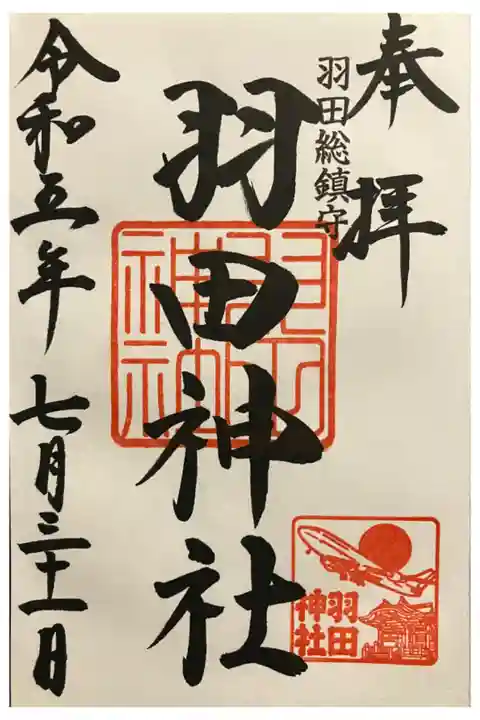 奉拝
羽田総鎮守
羽田神社
令和五年七月三十一日
羽田
神社